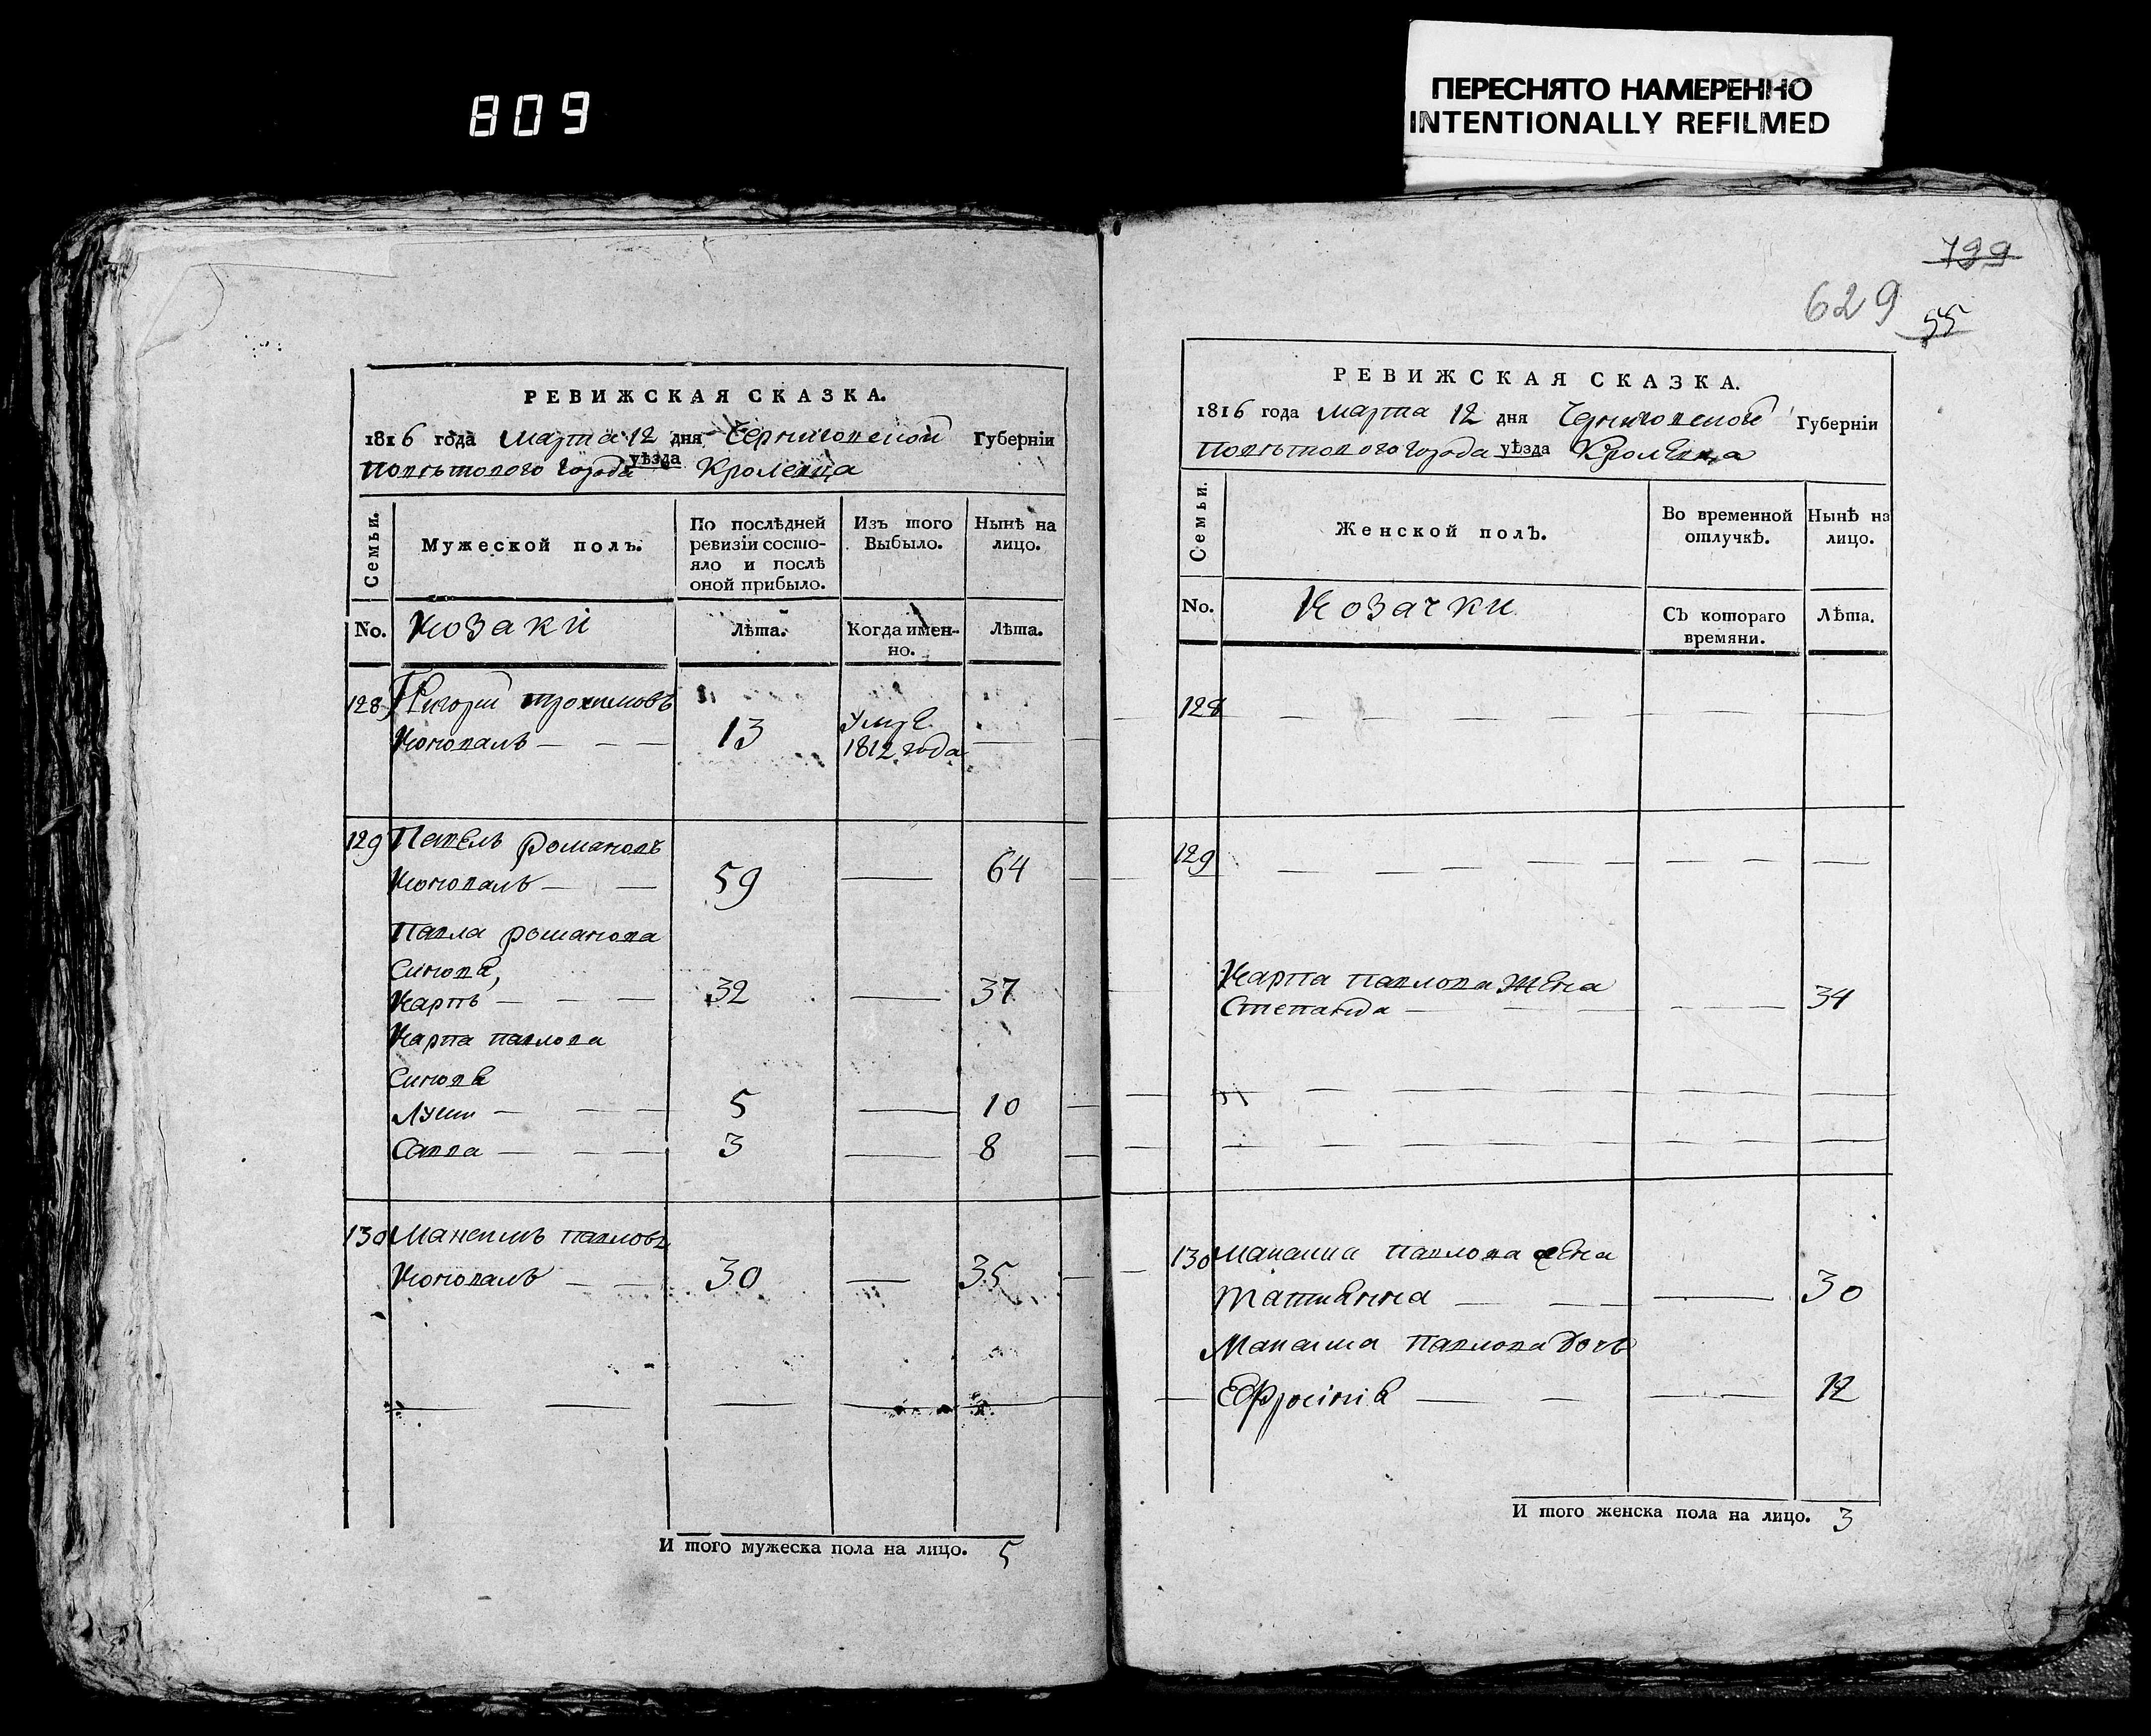 809
ПЕРЕСНЯТО НАМЕРЕННО
INTENTIONALLY REFILMED
РЕВИЖСКАЯ СКАЗКА.
1816 года Марта 12 дня Черниговской Губерніи
Повѣтового города уѣзда Кролевца
Семьи.
Мужеской полъ.
По послѣдней ревизіи состо-
яло и послѣ
оной прибыло.
Изъ того
Выбыло.
Нынѣ на
лицо.
No.
Козаки
Лѣта.
Когда имен-
но.
Лѣта.
128 Григорій трохимовъ
Коновалъ 13 умре
1812 года
129 Павелъ романовъ
Коновалъ 59 64
Павла романова
Синове,
Карпъ 32 37
Карпа павлова
Синове
Луки 5 10
Савва 3 8
130 Максимъ павловъ
Коновалъ 30 35
И того мужеска пола на лицо. 5
799
629
55
РЕВИЖСКАЯ СКАЗКА.
1816 года Марта 12 дня Черниговской Губерніи
Повѣтового города уѣзда Кролевца
Семьи.
Женской полъ.
Во временной
отлучкѣ.
Нынѣ на
лицо.
No.
Козачки
Съ котораго
времяни.
Лѣта.
128
129
Карпа павлова жена
Степанида 34
130 Максима павлова жена
Татиянна 30
Максима павлова дочь
Ефросінія 12
И того женска пола на лицо. 3